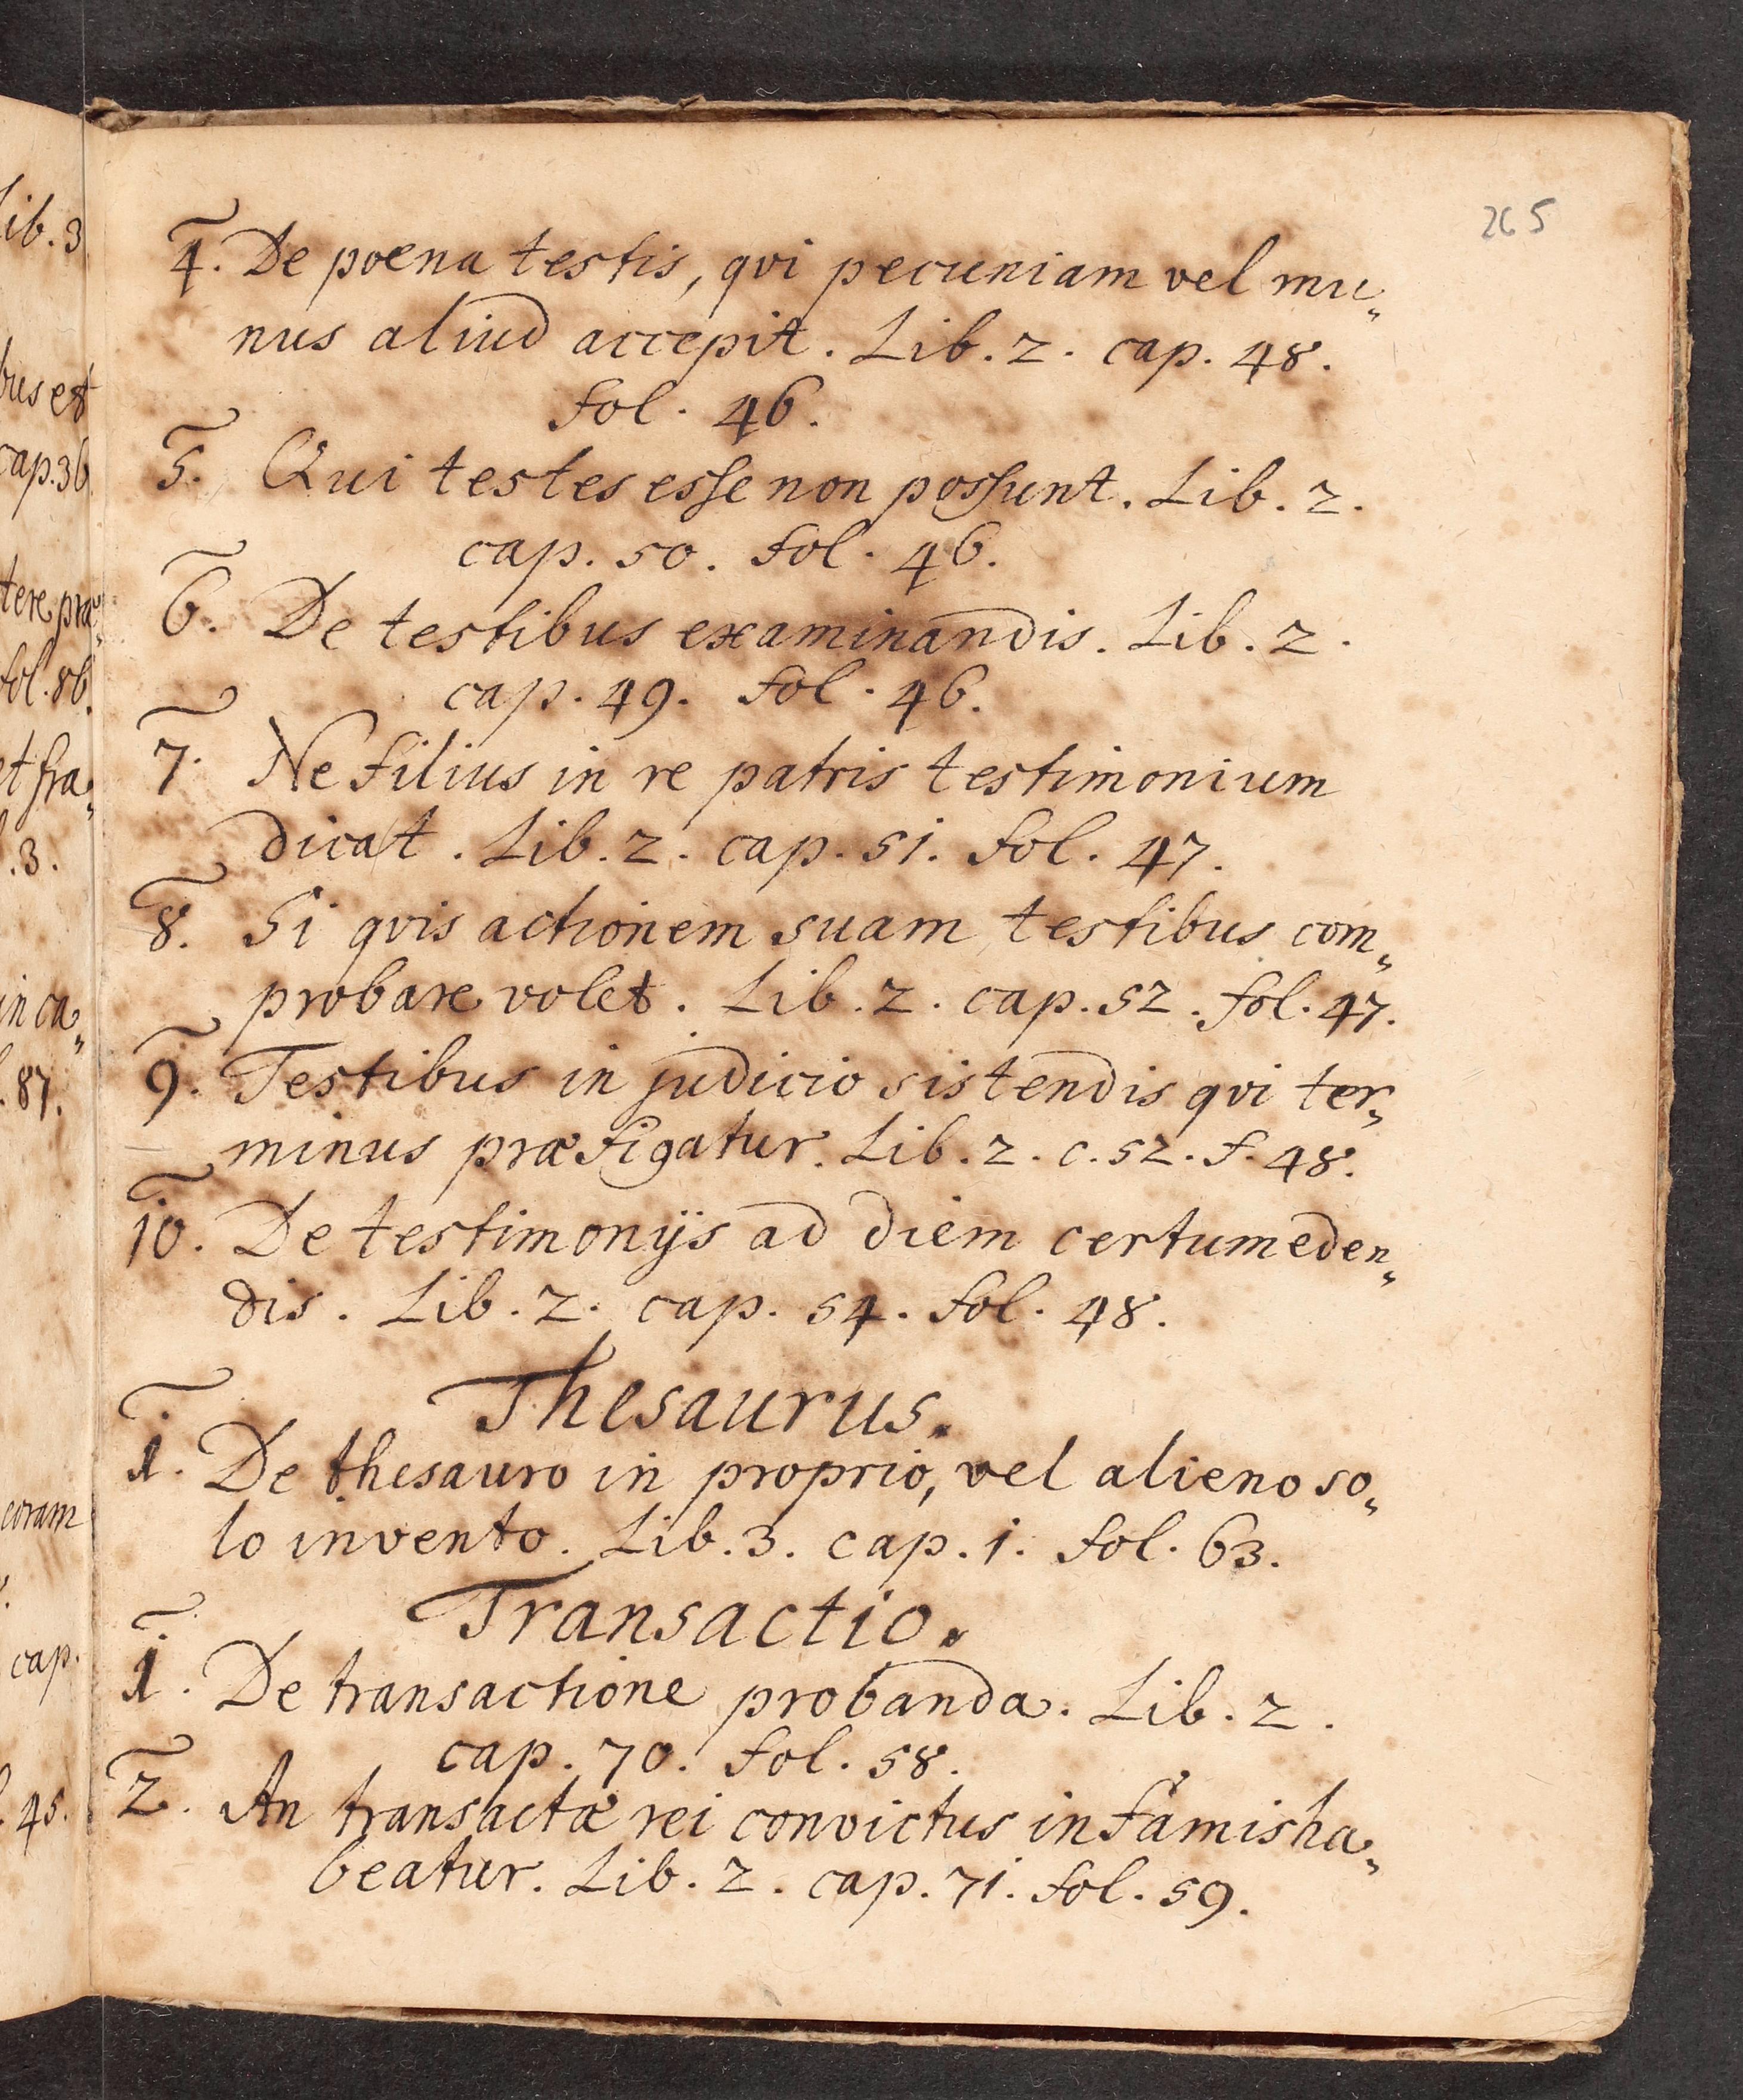 265
4. De poena testis, qvi pecuniam vel mu„
nus aliud accepit. Lib. 2. cap. 48.
fol. 46.
5. Qui testes esse non possunt. Lib. 2.
cap. 50. fol. 46.
6. De testibus examinandis. Lib. 2.
cap. 49. fol. 46.
7. Ne filius in re patris testimonium
dicat. Lib. 2. cap. 51. fol. 47.
8. Si qvis actionem suam testibus com„
probare volet. Lib. 2. cap. 52. fol. 47.
9. Testibus in judicio sistendis qvi ter„
minus præfigatur. Lib. 2. c. 52. f. 48.
10. De testimonijs ad diem certum eden„
dis. Lib. 2. cap. 54. fol. 48.
Thesaurus.
1. De thesauro in proprio, vel alieno so„
lo invento. Lib. 3. cap. 1. fol. 63.
Transactio.
1. De transactione probanda. Lib. 2.
cap. 70. fol. 58.
2. An transactæ rei convictus infamis ha„
beatur. Lib. 2. cap. 71. fol. 59.
ib. 3
bus et
cap. 36
tere præ„
fol. 86.
et fra„
. 3.
in ca„
. 87.
coram
cap.
. 45.